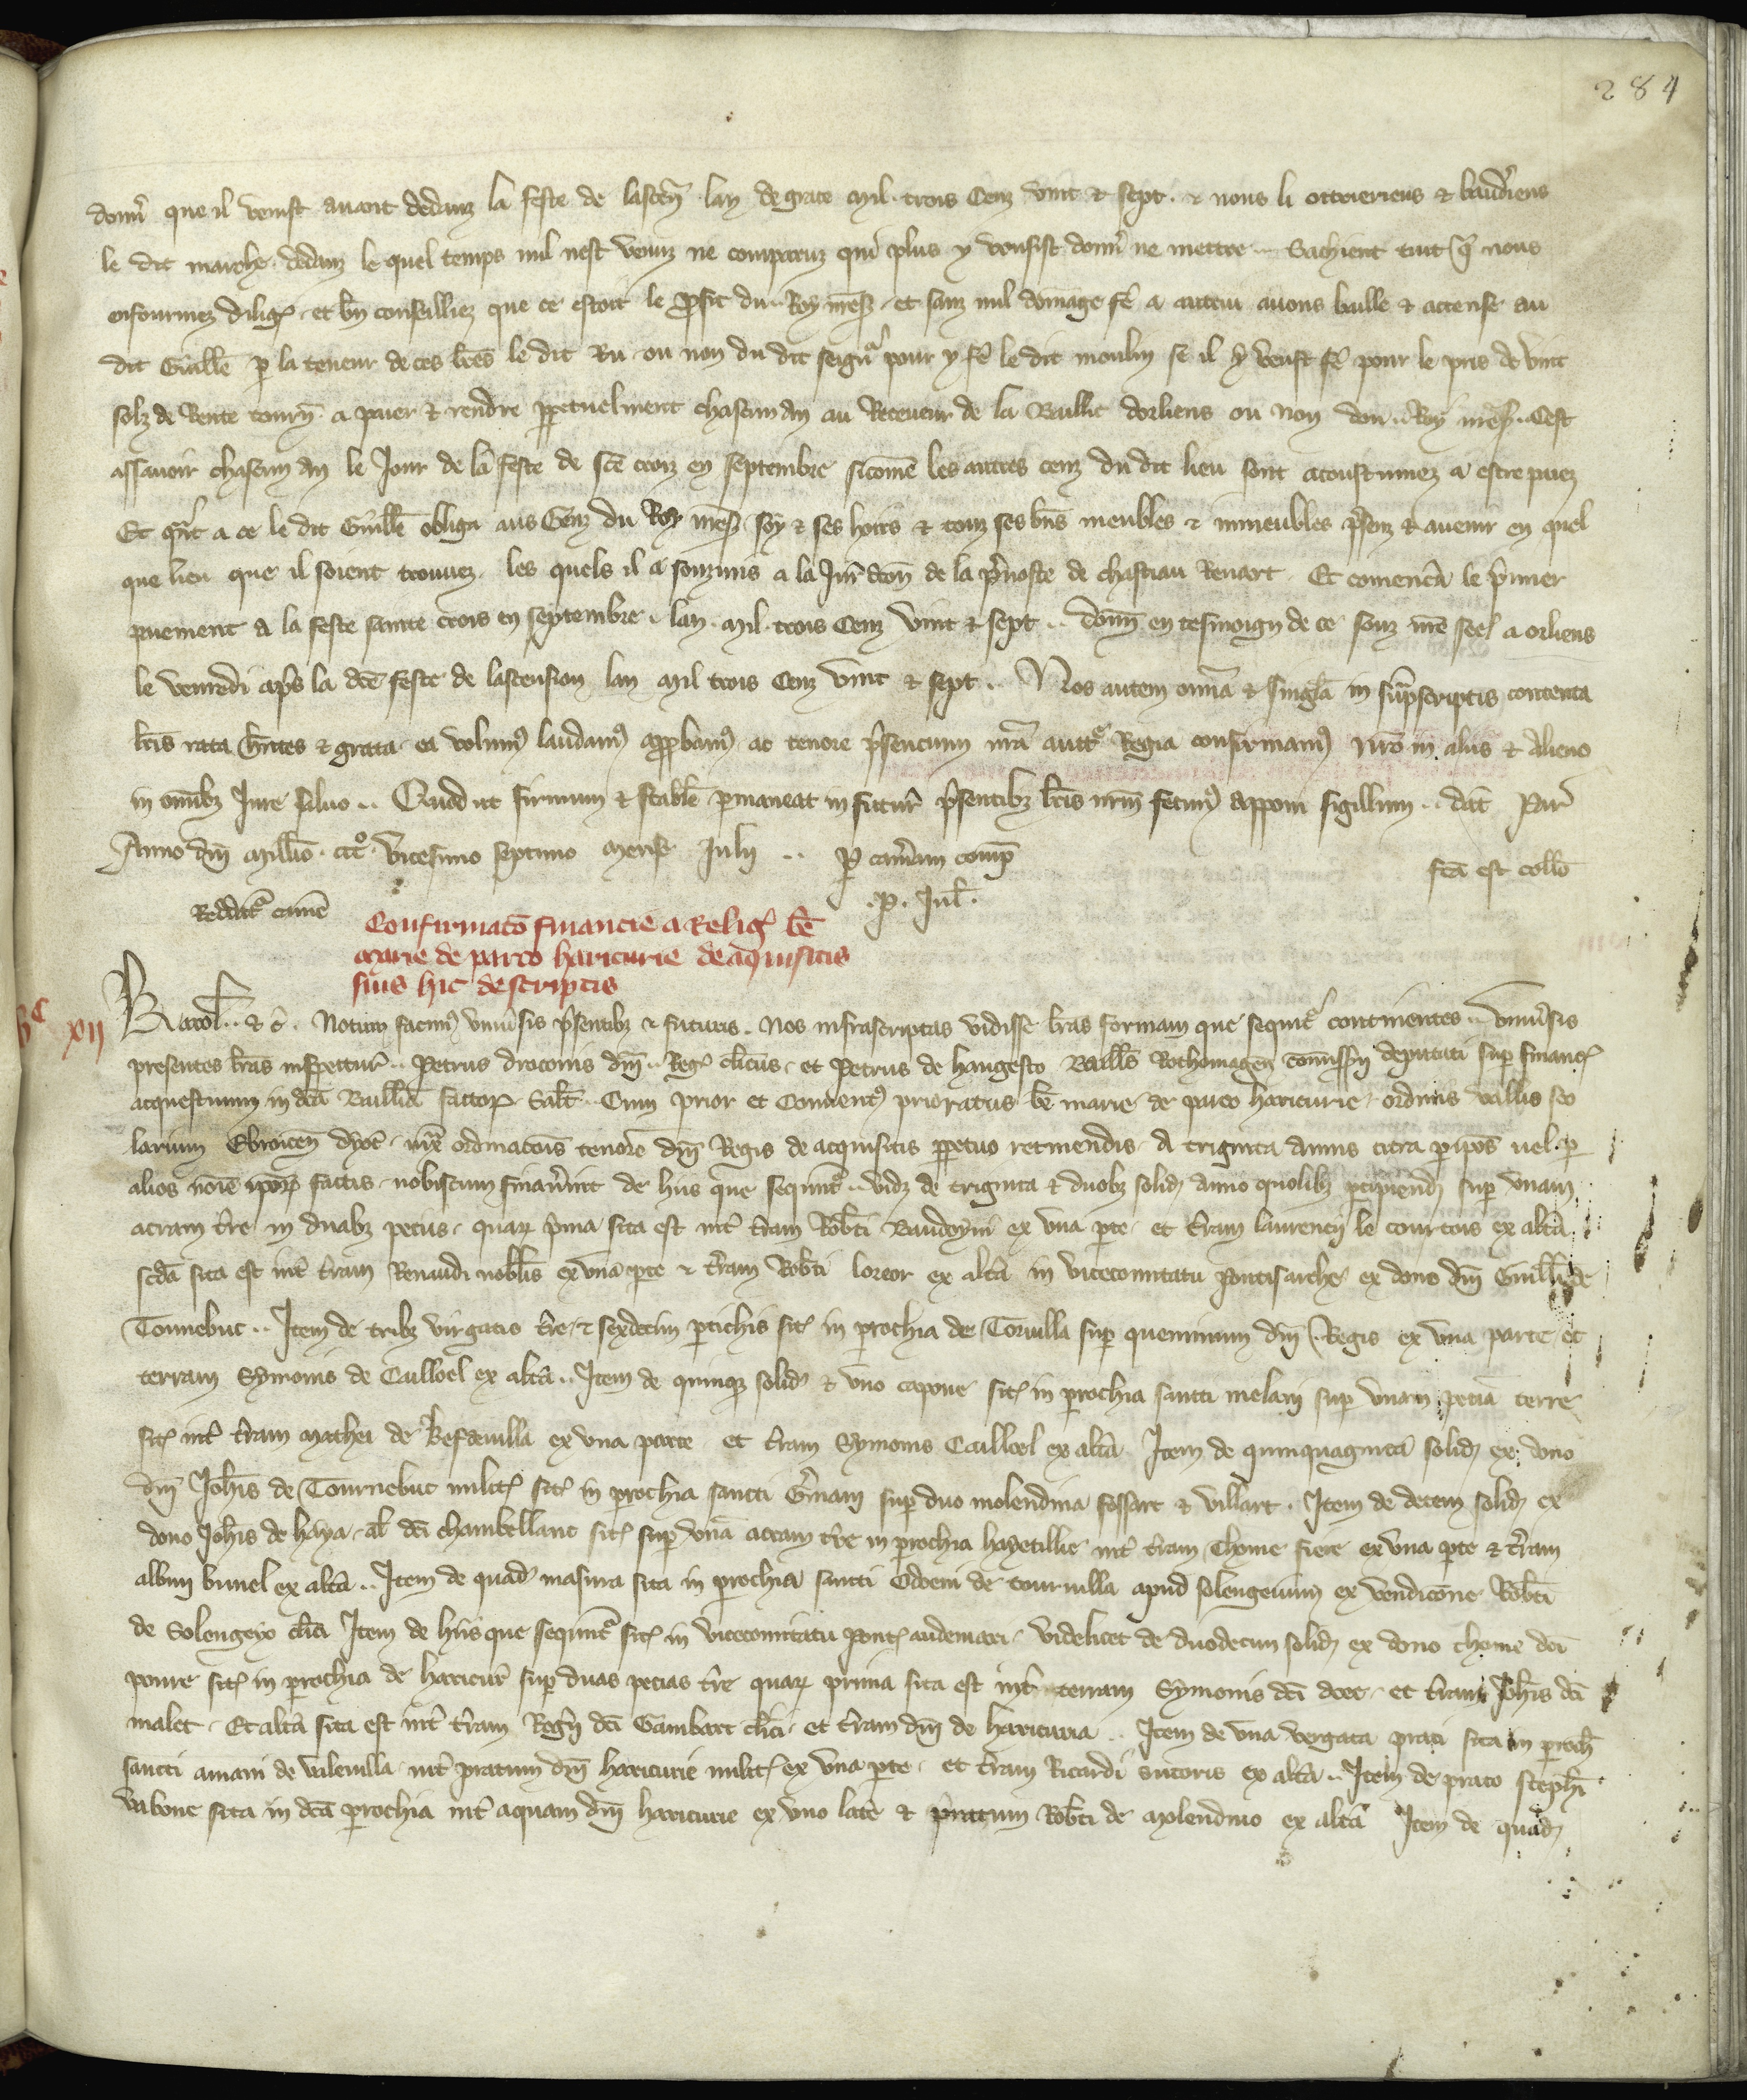 284
donn̄ que il venist auant dedanz la feste de lascēn̄ lan de grace mil trois Cenz vint & sept. & nous li ottrieriens & baudriens
le dit marche. dedanz le quel temps nul nest venuz ne comparuz qui plus y vousist donn̄ ne mettre .. Sachient tuit q̄ nous
enfourmez diliḡ. et bn̄ conseilliez que ce estoit le ꝓfit du .. Roy mes̄. et sanz nul domage fē a autrui auons baille & accense au
dit Guill̄e p̱ la teneur de ces l̄res le dit Ru ou non du dit seign̄r pour y fē le dit moulin se il y veust fē pour le pris de vint
solz de Rente tourn̄. a paier & rendre p̱petuelment chascun an au Receueur de la Baillie dorliens ou non dou .. Roy mes̄. .. Cest
assauoir chascun an le Jour de la feste de sc̄e croiz en septembre sicom̄e les autres cenz du dit lieu sont acoustumez a estre paiez
Et q̄nt a ce le dit Guill̄e obliga aus Genz du Roy mes̄. soy & ses hoirs & touz ses bn̄s meubles & inmeubles p̄senz & auenir en quel
que lieu que il soient trouuez. les quels il a souzmis a la Jur̄dcōn de la p̄uoste de chastiau Renart. Et comenc̄a le p̄mier
paiement a la feste sainte crois en septembre. lan. mil. trois Cenz vint & sept .. don̄n en tesmoign de ce souz n̄re seel a orliens
le venredi ap̄s la dc̄e feste de lascension lan mil trois Cenz vint & sept .. Nos autem om̄ia & singl̄a in sup̄scriptis contenta
l̄ris rata h̄ntes & grata. ea volum⁹ laudam⁹ app̱bam⁹ ac tenore p̄sencium n̄ra auct̄e Regia confirmam⁹ n̄ro in aliis & alieno
in om̄ibꝫ Jure saluo .. Quod ut firmum & stabl̄e p̱maneat in futur̄ p̄sentibꝫ l̄ris n̄rm̄ fecim⁹ apponi sigillum .. dat̄ Par̄
Anno dn̄i mill̄io. ccc̊. vicesimo septimo mense Julij .. P̱ cam̄am comp̄
fc̄a est coll̄o
.P. Jul̄.
Reddit̄r cam̄e
Confirmac̄o financie a Reliḡ. bē
marie de parco haricurie de acquisitis
suis hic descriptis
vᶜ xij
Karol̄ .. & c̄. Notum facim⁹ vniu̇sis p̄sentibꝫ & futuris. Nos infrascriptas vidisse l̄ras formam que sequit̄r continentes .. vniu̇sis
presentes l̄ras inspectur̄ .. Petrus draconis dn̄i .. Reḡ. cl̄icus. et Petrus de hangesto Baill̄s Rothomagen̄ com̄issar̄ deputati sup̱ financ̄.
acquestuum in dc̄a Baill̄ia factoꝝ. Salt̄. Cum prior et Conuent⁹ prioratus bē marie de parco haricurie. ordinis vallis sco
larium Ebroicen̄ dyoc̄. iux̄ ordinacōis tenorē dn̄i Regis de acquisitis p̱petuo retinendis. A triginta annis citra p̱ ip̄os uel. p̱
alios noīe ip̄oꝝ factis. nobiscum finau̇int de hiis que sequnt̄r .. vidꝫ de triginta & duobꝫ solid̄ anno quolibꝫ p̱cipiend̄ sup̱ vnam
acram t̄re in duabꝫ peciis. quaꝝ p̄ma sita est int̄ t̄ram Rob̄ti Baudoyni ex vna p̱te. et t̄ram laurencij le courtois ex alt̄a
scd̄a sita est int̄ t̄ram Renaudi nobil̄is ex vna p̱te & t̄ram Rob̄ti loreor ex alt̄a in vicecomitatu pontisarche ex dono dn̄i Guill̄i de
Tournebuc .. Item de tribꝫ virgatis t̄re & sexdecim p̱tichis sit̄. in p̱rochia de Toruilla sup̱ queminum dn̄i .. Regis ex vna parte et
terram Symonis de Cailloel ex alt̄a .. Item de quinqꝫ solid̄ & vno capone sit̄. in p̱rochia sancti melani sup̱ vnam peciā terre
sit̄. int̄ t̄ram mathei de Besdeuilla ex vna parte et t̄ram Symonis Cailloel ex alt̄a Item de quinquaginta solid̄ ex dono
dn̄i Joh̄is de Tournebuc milit̄. sit̄. in p̱rochia sancti Ḡmani sup̱ duo molendina fossart & villart. Item de decem solid̄ ex
dono Joh̄is de haya. al̄ dc̄i chambellanc sit̄. sup̱ vnā acram t̄re in p̱rochia hayetillie int̄ t̄ram Thome fiere ex vna p̱te & t̄ram
albini bunel ex alt̄a .. Item de quad̄ masura sita in p̱rochia sancti Odoeni de tournilla apud solengeium ex vendicōne Rob̄ti
de Solengeyo cl̄ici Item de hiis que sequnt̄r sit̄. in vicecomitatu Pont̄. audemari. videlicet de duodecim solid̄ ex dono thome dc̄i
poure sit̄. in p̱rochia de haricur̄ sup̱ duas pecias t̄re quaꝝ prima sita est int̄ terram Symonis dc̄i doee. et t̄ram Joh̄is dc̄i
malet. Et alt̄a sita est int̄ t̄ram Reḡn̄ dc̄i Gambart cl̄ici. et t̄ram dn̄i de haricuria .. Item de vna vergata prati sita in p̱roch̄
sancti amani de vileuilla. int̄ pratum dn̄i haricurie milit̄. ex vna p̱te. et t̄ram Ricardi sutoris ex alt̄a .. Item de prato steph̄i
vabone sita in dc̄a p̱rochia int̄ aquam dn̄i haricurie ex vno latē & pratum Rob̄ti de molendino ex alt̄a Item de quad̄